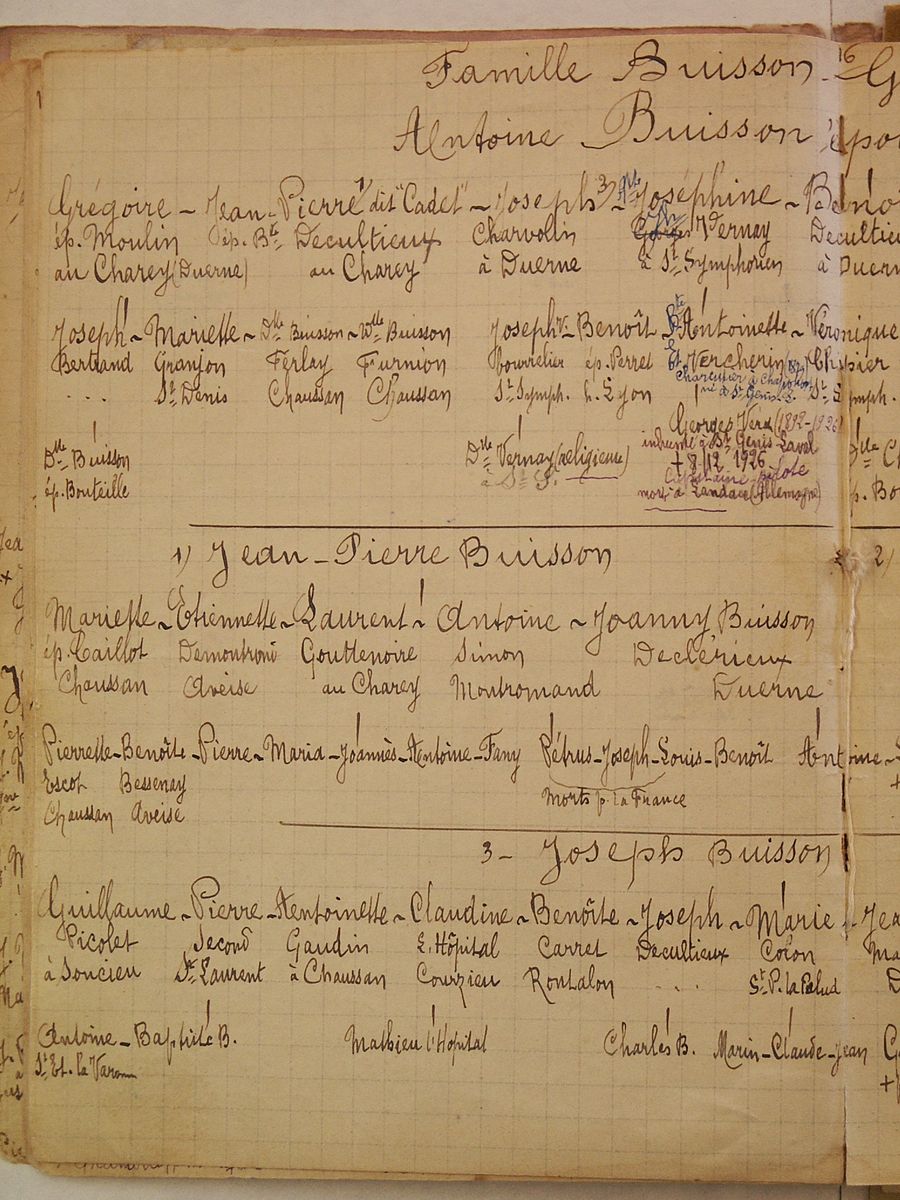 Famille Buisson - 16 G
Antoine Buisson épou
Grégoire - Jean-Pierre 1) dit "Cadet" - Joseph 3) - Joséphine - Béno
ép. Moulin ép. Bte Decultieux Charvolin Vernay Decultieu
au Charey (Duerne) au Charey à Duerne à St Symphorien à Duern
Joseph - Mariette - Dlle Buisson - Dlle Buisson Joseph - Benoît - Antoinette - Véronique
Bertrand Granjon Ferlay Furnion Bourrelier ép. Perret Vercherin
. . . St Denis Chaussan Chaussan St Symph. h. Lyon St Symph.
Charcutier à
né à St Genis L.
Georges Véra (1892-1926)
Dlle Buisson Dlle Vernay (religieuse) à St Genis-Laval
ép. Bouteille à St S. + 8/12 1926
Capitaine pilote
mort à Landau (Allemagne) p. Bo
1) Jean-Pierre Buisson 2)
Mariette - Etiennette - Laurent - Antoine - Joanny Buisson
ép. Caillot Demontrond Gouttenoire Simon Declérieux
Chaussan Aveise au Charey Montromand Duerne
Pierrette - Benoîte - Pierre - Maria - Joannès - Antoine - Fany Pétrus - Joseph - Louis - Benoît Antoine -
Escot Bessenay Morts p. la France
Chaussan Aveise
3 - Joseph Buisson
Guillaume - Pierre - Antoinette - Claudine - Benoîte - Joseph - Marie - Jea
Picolet Second Gaudin L'Hôpital Carret Decultieux Colon Ma
à Soucieu St Laurent à Chaussan Courzieu Rontalon . . . St P. la Palud D
Antoine - Baptiste B. Mathieu l'Hôpital Charles B. Marin - Claude - Jean G
St Et. la Varenne